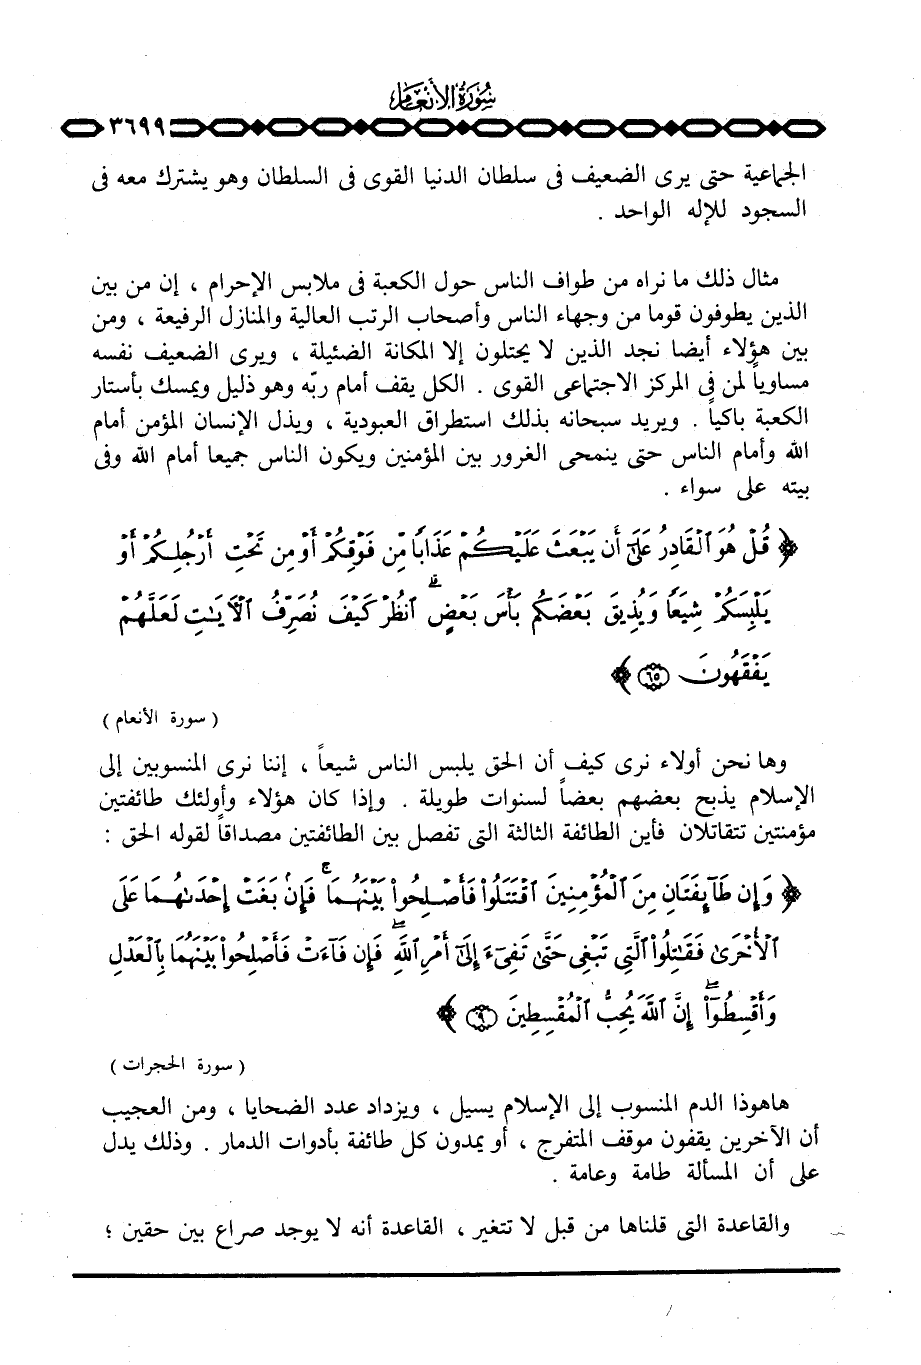 سورة الأنعام
٣٦٩٩
الجماعية حتى يرى الضعيف فى سلطان الدنيا القوى فى السلطان وهو يشترك معه فى
السجود للإله الواحد .
مثال ذلك ما نراه من طواف الناس حول الكعبة فى ملابس الإحرام ، إن من بين
الذين يطوفون قوما من وجهاء الناس وأصحاب الرتب العالية والمنازل الرفيعة ، ومن
بين هؤلاء أيضا نجد الذين لا يحتلون إلا المكانة الضئيلة ، ويرى الضعيف نفسه
مساوياً لمن فى المركز الاجتماعى القوى . الكل يقف أمام ربّه وهو ذليل ويمسك بأستار
الكعبة باكياً . ويريد سبحانه بذلك استطراق العبودية ، ويذل الإنسان المؤمن أمام
الله وأمام الناس حتى ينمحى الغرور بين المؤمنين ويكون الناس جميعا أمام الله وفى
بيته على سواء .
﴿ قُلْ هُوَ ٱلْقَادِرُ عَلَىٰٓ أَن يَبْعَثَ عَلَيْكُمْ عَذَابًا مِّن فَوْقِكُمْ أَوْ مِن تَحْتِ أَرْجُلِكُمْ أَوْ
يَلْبِسَكُمْ شِيَعًا وَيُذِيقَ بَعْضَكُم بَأْسَ بَعْضٍ ۗ ٱنظُرْ كَيْفَ نُصَرِّفُ ٱلْآيَٰتِ لَعَلَّهُمْ
يَفْقَهُونَ ٦٥ ﴾
( سورة الأنعام )
وها نحن أولاء نرى كيف أن الحق يلبس الناس شيعاً ، إننا نرى المنسوبين إلى
الإسلام يذبح بعضهم بعضاً لسنوات طويلة . وإذا كان هؤلاء وأولئك طائفتين
مؤمنتين تتقاتلان فأين الطائفة الثالثة التى تفصل بين الطائفتين مصداقاً لقوله الحق :
﴿ وَإِن طَآئِفَتَانِ مِنَ ٱلْمُؤْمِنِينَ ٱقْتَتَلُوا۟ فَأَصْلِحُوا۟ بَيْنَهُمَا ۖ فَإِنۢ بَغَتْ إِحْدَىٰهُمَا عَلَى
ٱلْأُخْرَىٰ فَقَٰتِلُوا۟ ٱلَّتِى تَبْغِى حَتَّىٰ تَفِىٓءَ إِلَىٰٓ أَمْرِ ٱللَّهِ ۚ فَإِن فَآءَتْ فَأَصْلِحُوا۟ بَيْنَهُمَا بِٱلْعَدْلِ
وَأَقْسِطُوٓا۟ ۖ إِنَّ ٱللَّهَ يُحِبُّ ٱلْمُقْسِطِينَ ٩ ﴾
( سورة الحجرات )
هاهوذا الدم المنسوب إلى الإسلام يسيل ، ويزداد عدد الضحايا ، ومن العجيب
أن الآخرين يقفون موقف المتفرج ، أو يمدون كل طائفة بأدوات الدمار . وذلك يدل
على أن المسألة طامة وعامة .
والقاعدة التى قلناها من قبل لا تتغير ، القاعدة أنه لا يوجد صراع بين حقين ؛